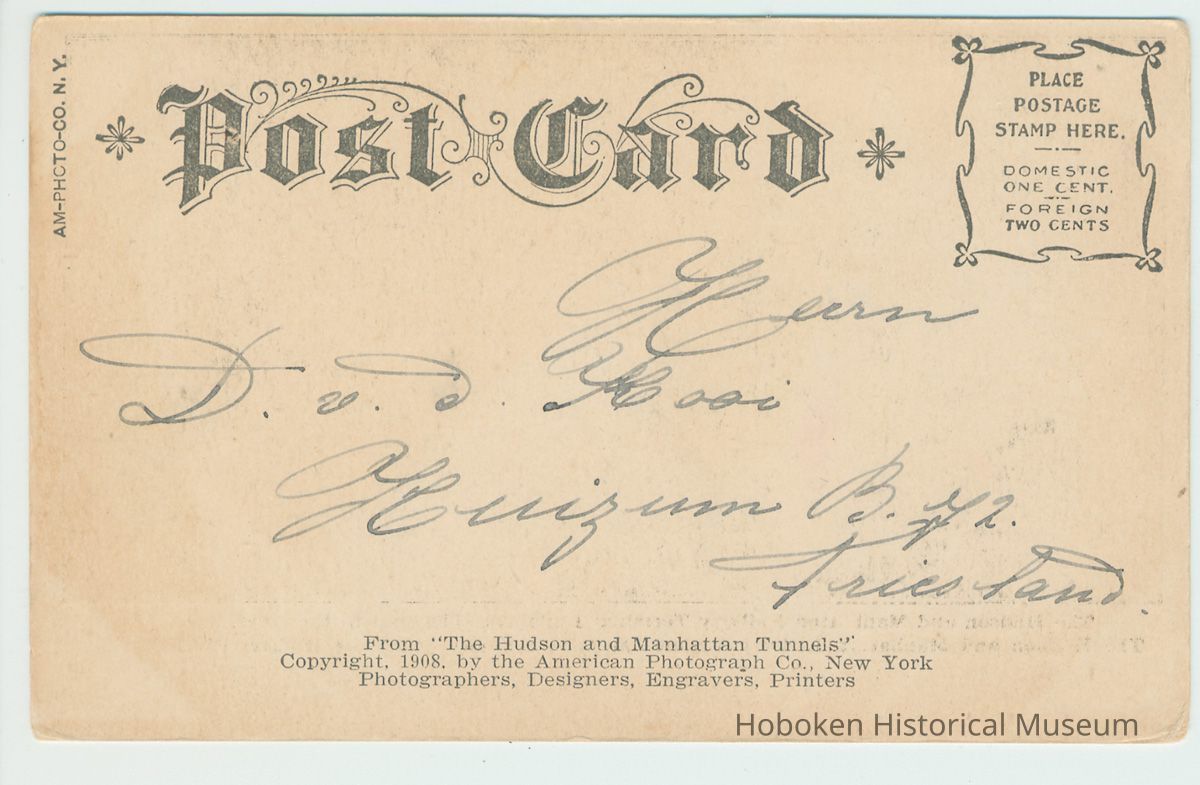 AM-PHOTO-CO. N. Y.
Post Card
PLACE
POSTAGE
STAMP HERE.
DOMESTIC
ONE CENT.
FOREIGN
TWO CENTS
Heern
D. v. d. Kooi
Huizum B.
Friesland.
From "The Hudson and Manhattan Tunnels"
Copyright, 1908, by the American Photograph Co., New York
Photographers, Designers, Engravers, Printers
Hoboken Historical Museum